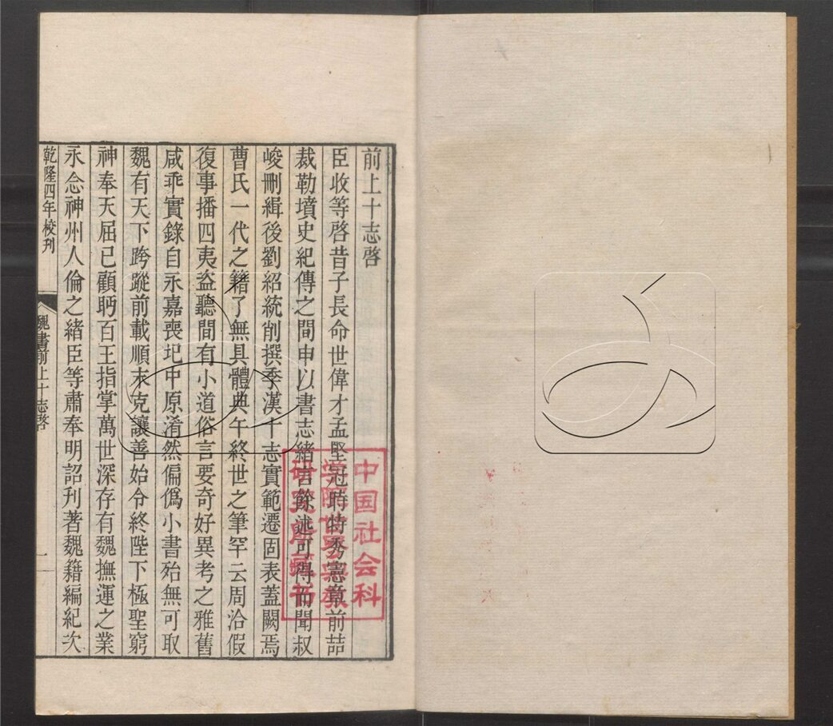 前上十志啓
臣收等啓昔子長命世偉才孟堅冠時特秀憲章前喆
裁勒墳史紀傳之間申以書志緒言餘迹可得而聞叔
峻刪緝後劉紹統削撰季漢十志實範遷固表蓋闕焉
曹氏一代之籍了無具體典午終世之筆罕云周洽假
復事播四夷盜聽間有小道俗言要奇好異考之雅舊
咸乖實錄自永嘉喪圮中原淆然偏僞小書殆無可取
魏有天下跨蹤前載順末克讓善始令終陛下極聖窮
神奉天屈已顧眄百王指掌萬世深存有魏撫運之業
永念神州人倫之緒臣等肅奉明詔刋著魏籍編紀次
乾隆四年校刋
魏書前上十志啓
一
中国社会科
學院
研究所藏书